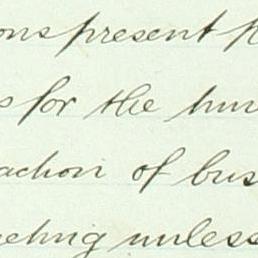 ons present
s for the
action of bus
eeting unless